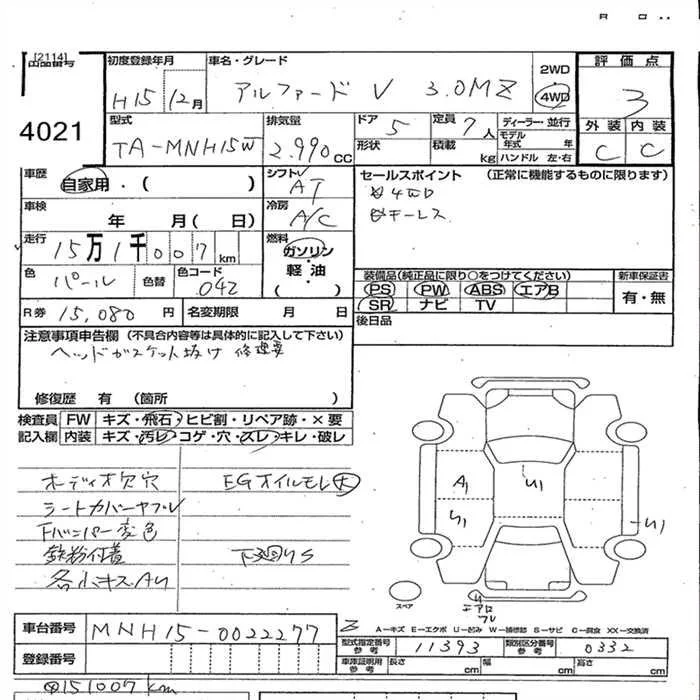 [2114]
出品番号
4021
初度登録年月
H15 12月
車名・グレード
アルファード V 3.0MZ
2WD
4WD
評価点
3
外装 内装
C C
型式
TA-MNH15W
排気量
2.990 CC
ドア
5
定員
7人
形状
積載 kg
ディーラー・並行
モデル年式 年
ハンドル 左・右
車歴
自家用・( )
シフト
AT
車検
年 月( 日)
冷房
A/C
走行
15万1千007 km
燃料
ガソリン
軽・油
( )
色
パール
色替
色コード
042
R券 15,080円
名変期限 月 日
セールスポイント (正常に機能するものに限ります)
4WD
キーレス
装備品(純正品に限り○をつけてください)
PS PW ABS エアB
SR ナビ TV
新車保証書
有・無
後日品
注意事項申告欄 (不具合内容等は具体的に記入して下さい)
ヘッドガスケット抜け 修理要
修復歴 有 (箇所 )
検査員 FW キズ・飛石・ヒビ割・リペア跡・×要
記入欄 内装 キズ・汚レ・コゲ・穴・スレ・キレ・破レ
オーディオ欠穴
EGオイルモレ大
シートカバーヤブレ
Fバンパー変色
鉄粉付着
下廻りS
各小キズAU
A1
U1
U1
U1
スペア
エアロ
A-キズ E-エクボ U-凹み W-補修跡 S-サビ C-腐食 XX-交換済
車台番号
MNH15-0022277
登録番号
型式指定番号 参考
11393
類別区分番号 参考
0332
車庫証明用 参考
長さ cm
幅 cm
高さ cm
151007km